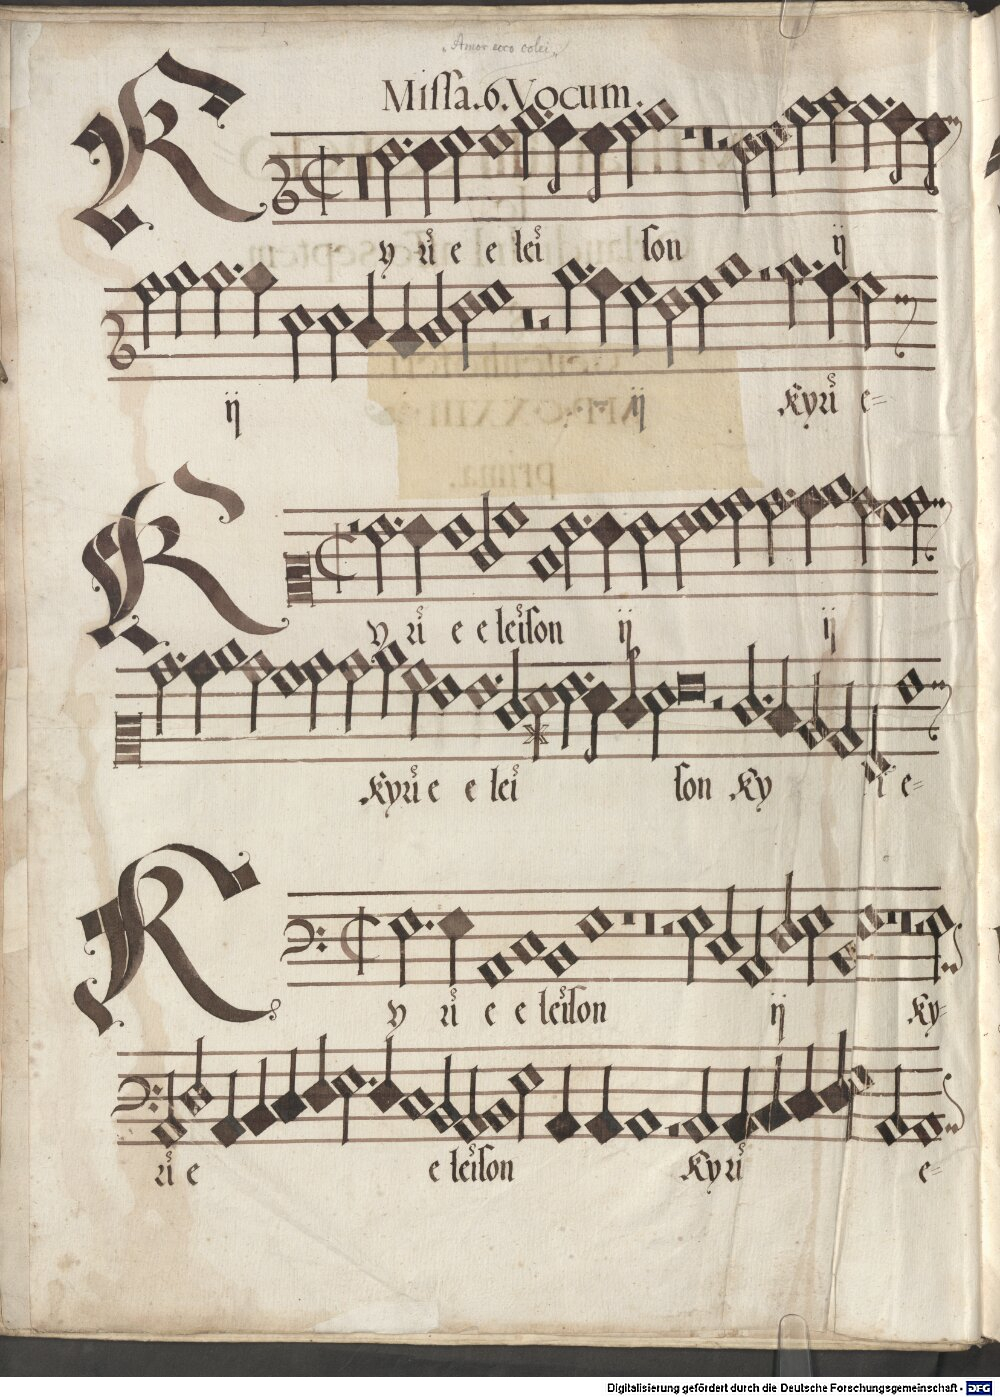 "Amor ecco colei"
Missa. 6. Vocum.
K yri e e lei son ij
ij ij Kyri e=
K yri e e leison ij ij
Kyri e e lei son Ky ri e=
K yri e e leison ij Ky=
ri e e leison Kyri e=
prima.
Digitalisierung gefördert durch die Deutsche Forschungsgemeinschaft - DFG